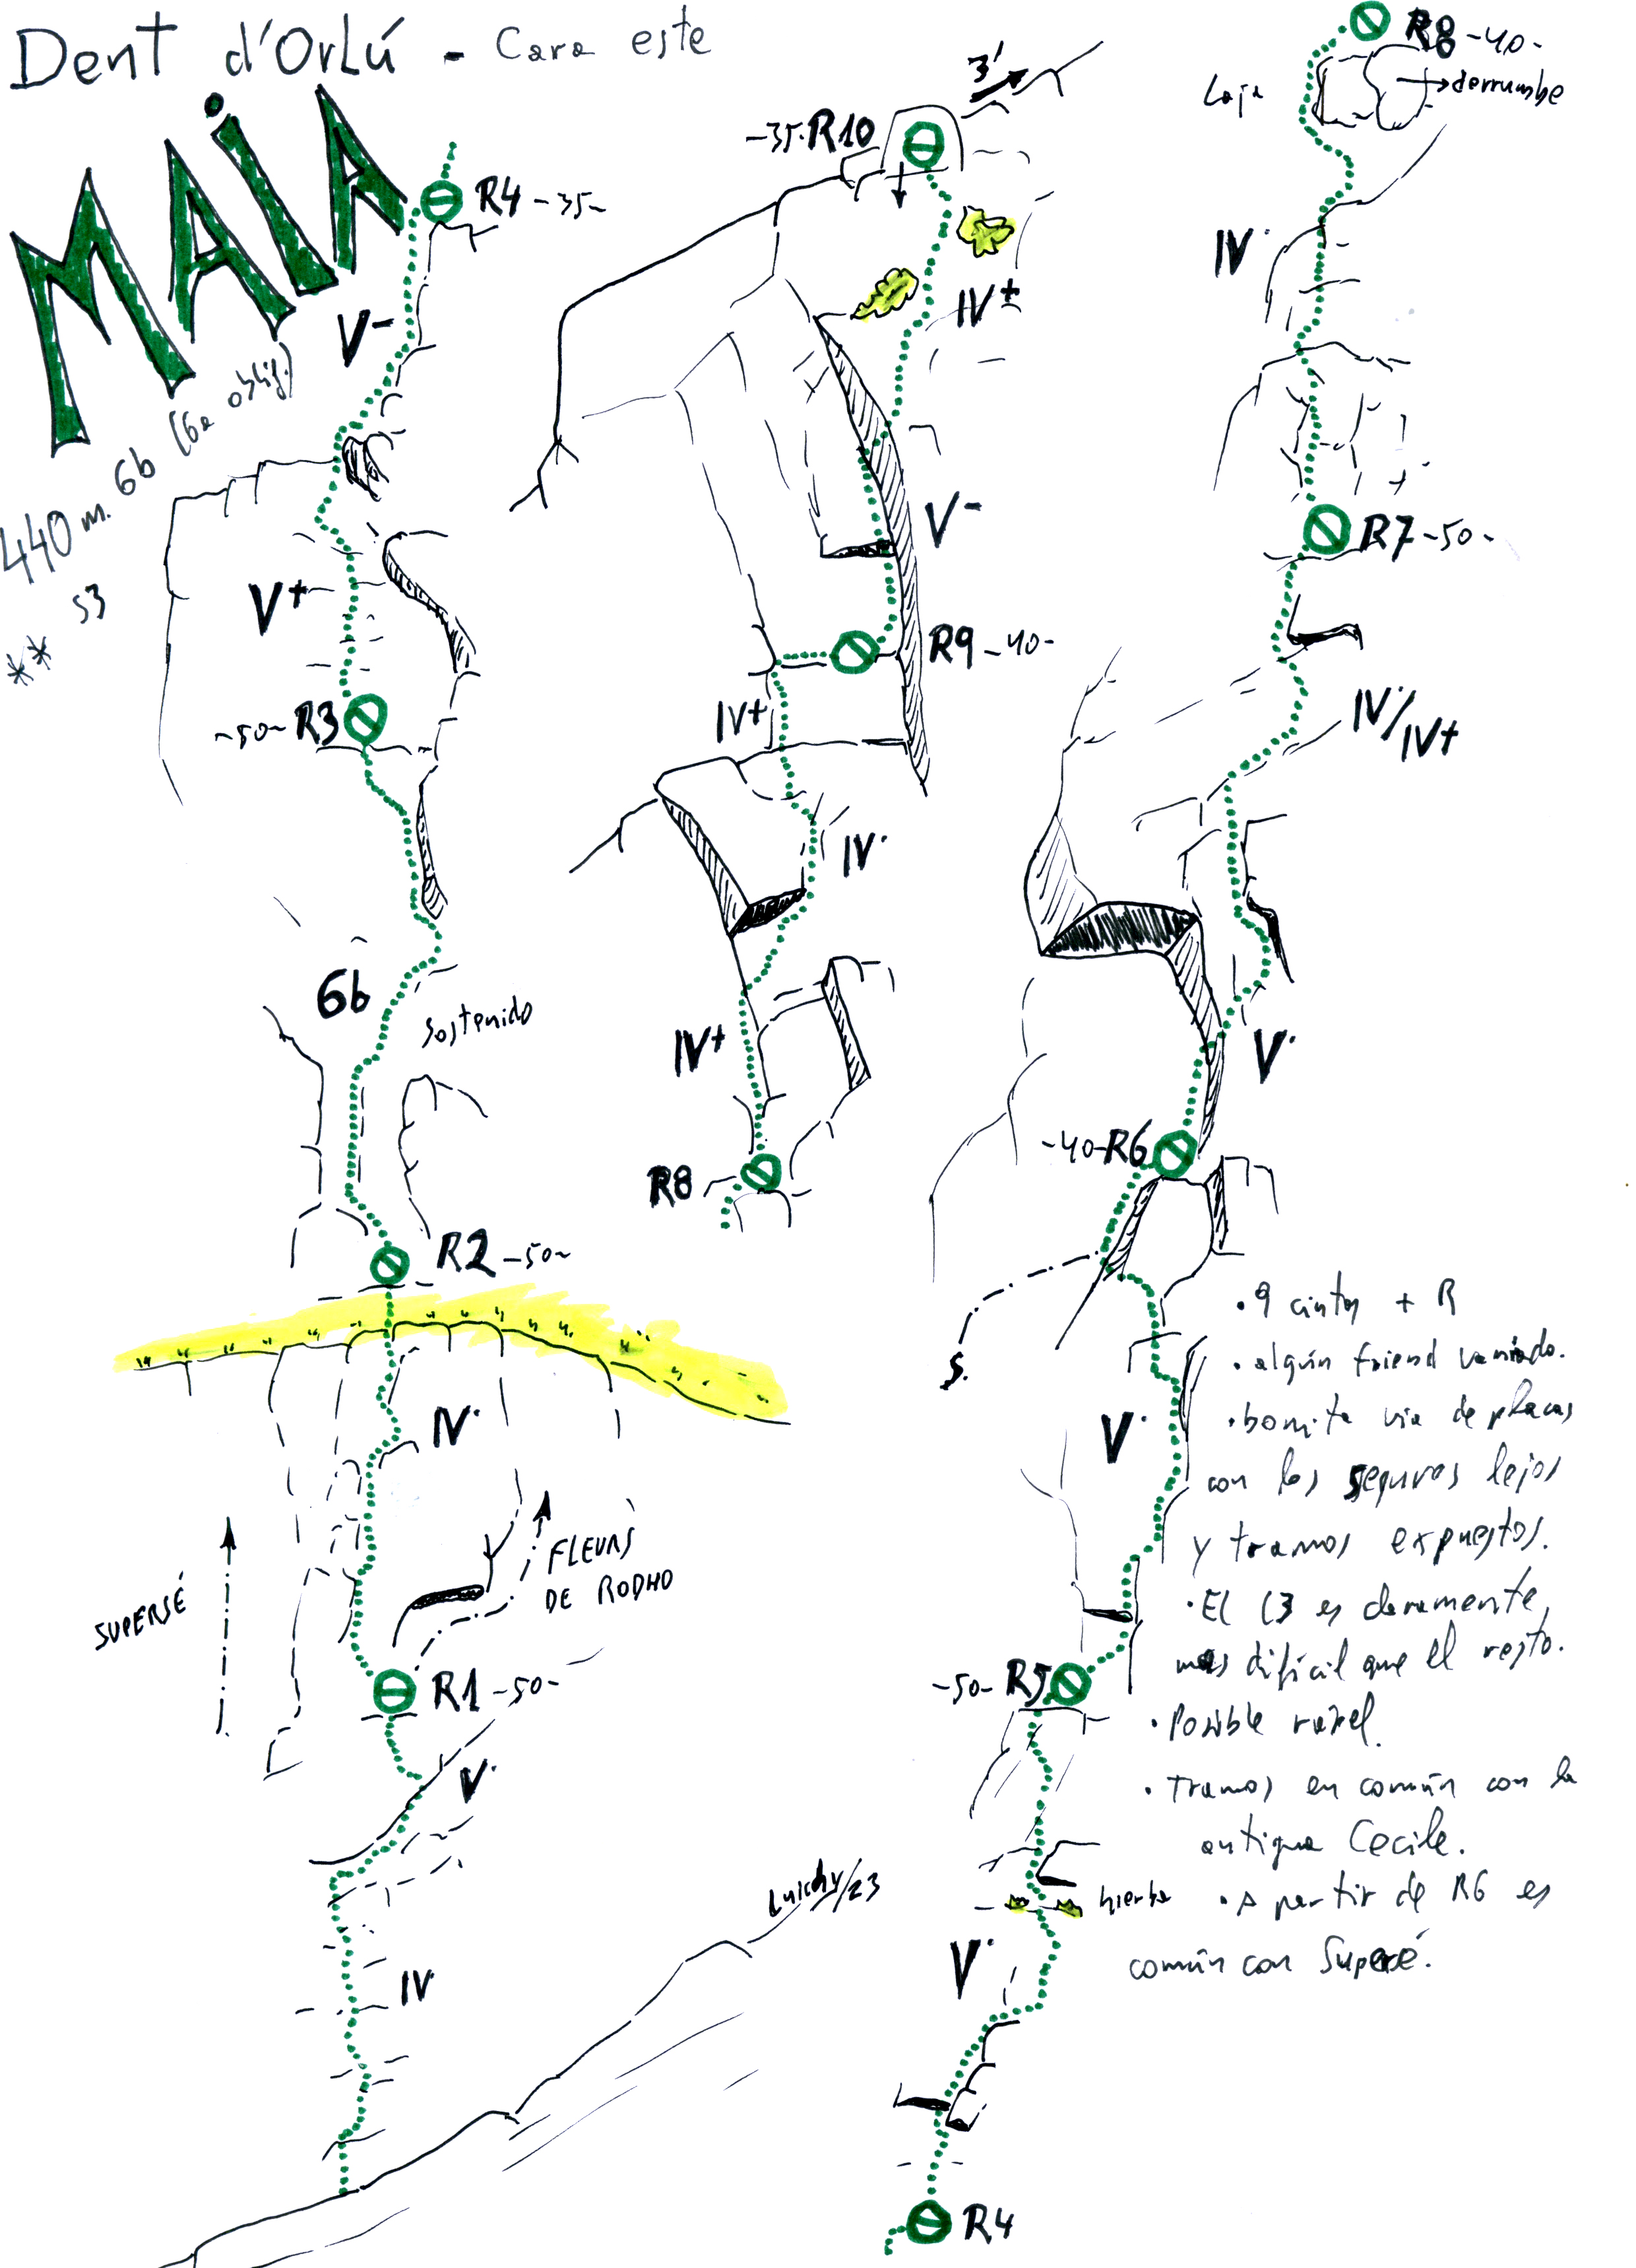 Dent d'Orlú - Cara este
MAIA
440 m. 6b (6a oblig.)
S3
**
R4 -35-
V-
V+
-50- R3
6b
Sostenido
R2 -50-
IV·
SUPERSÉ
FLEURS
DE RODHO
R1 -50-
V·
IV·
Luichy/23
3'
-35- R10
IV+
V-
R9 -40-
IV+
IV·
IV+
R8
R8 -40-
Laja
derrumbe
IV·
R7 -50-
IV/
IV+
V·
-40- R6
S.
V·
-50- R5
hierba
V·
R4
· 9 cintas + R
· algún friend variado.
· bonita vía de placas
con los seguros lejos
y tramos expuestos.
· El L3 es claramente
mas difícil que el resto.
· Posible rapel.
· Tramos en común con la
antigua Cecile.
· A partir de R6 es
común con Supersé.